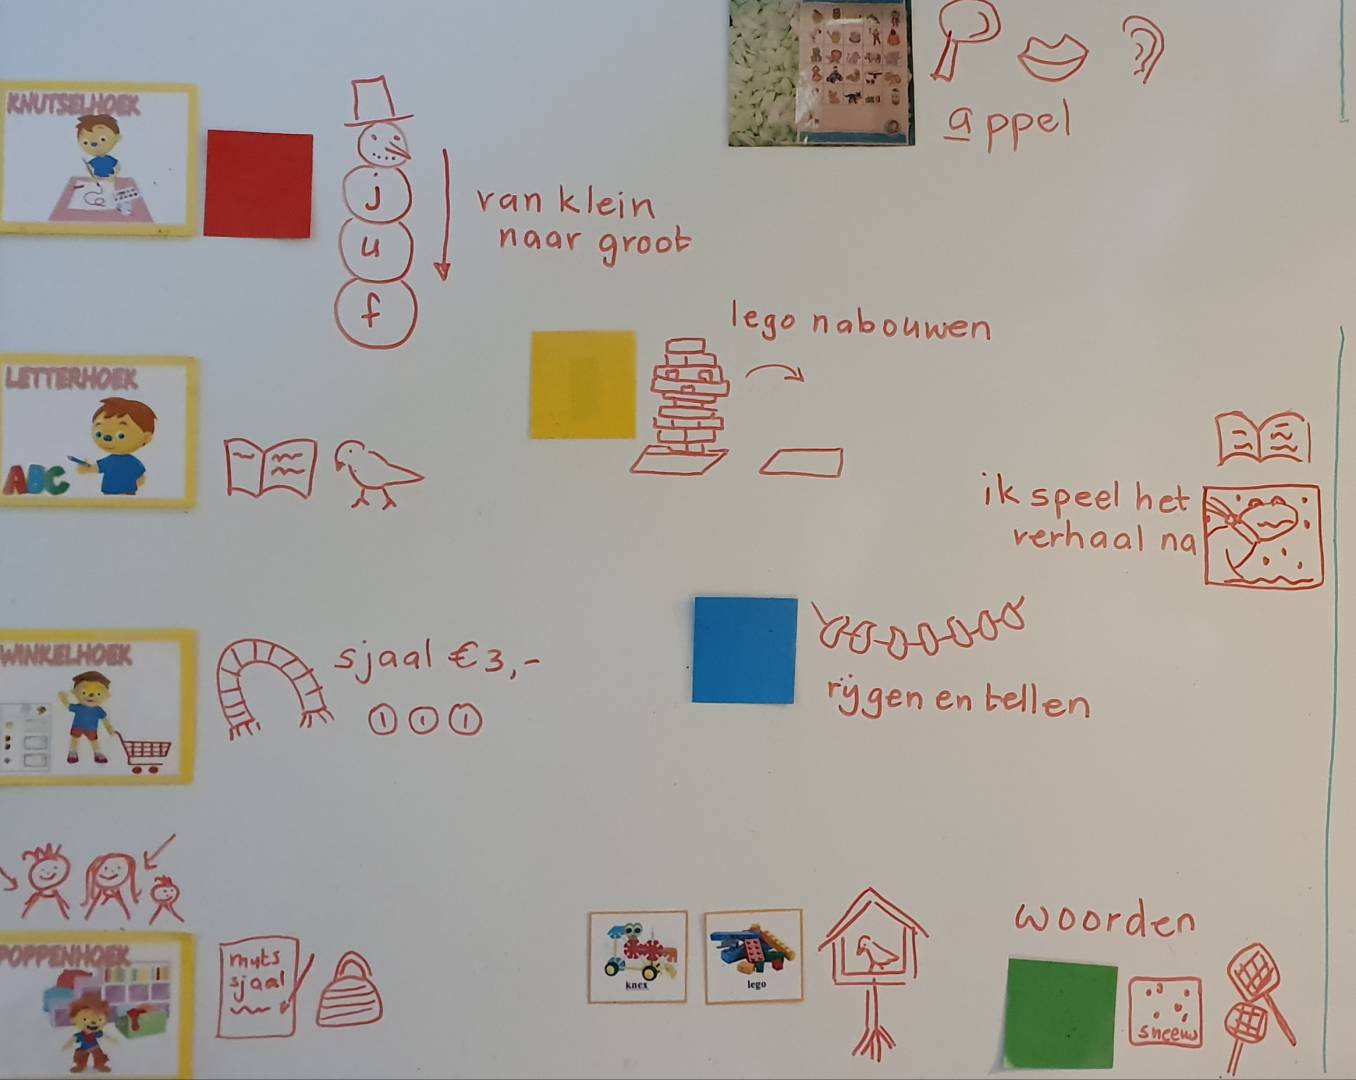 KNUTSELHOEK
j
u
f
van klein
naar groot
appel
lego nabouwen
LETTERHOEK
ABC
ik speel het
verhaal na
WINKELHOEK
sjaal € 3,-
1 1 1
rijgen en tellen
POPPENHOEK
muts
sjaal
knex
lego
woorden
sneeuw